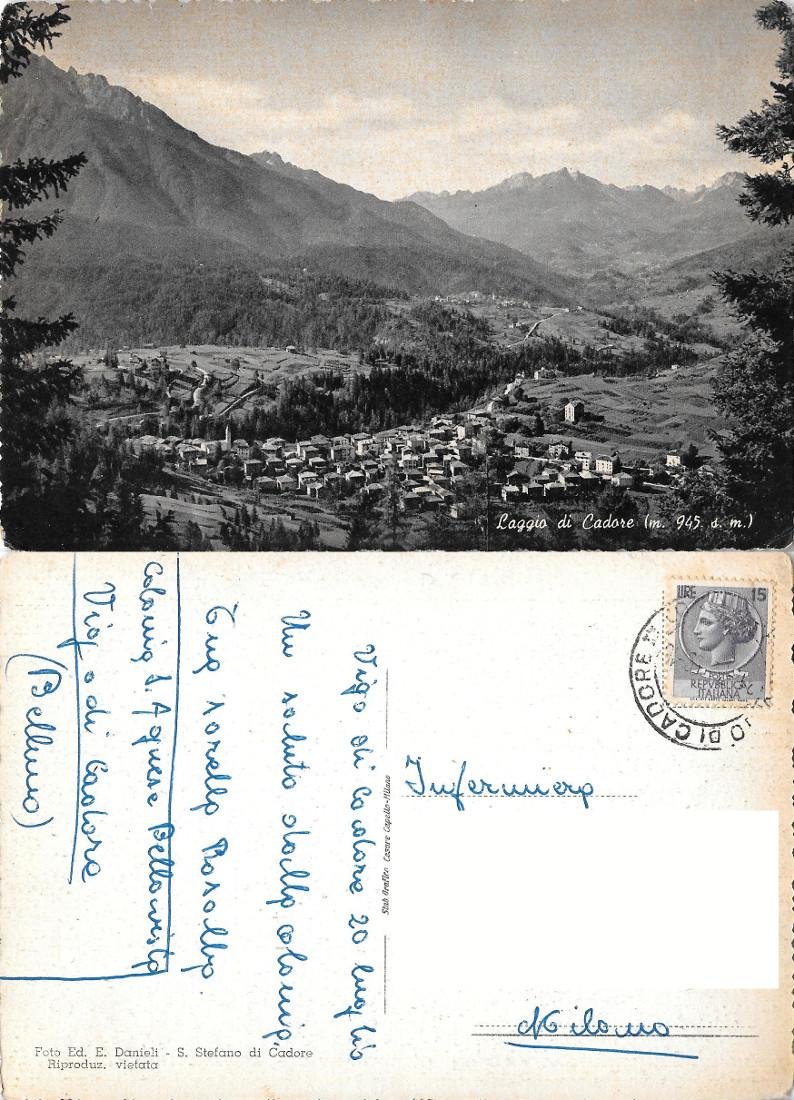 Laggio di Cadore (m. 945. s. m.)
Vigo di Cadore 20 luglio
Un saluto dalla colonia,
tua sorella Rosalba.
Colonia S. Agnese Bellavista
Vigo di Cadore
(Belluno)
LIRE 15
REPVBBLICA
ITALIANA
O DI CADORE
Infermiera
Milano
Stab. Grafico Cesare Capello-Milano
Foto Ed. E. Danieli - S. Stefano di Cadore
Riproduz. vietata